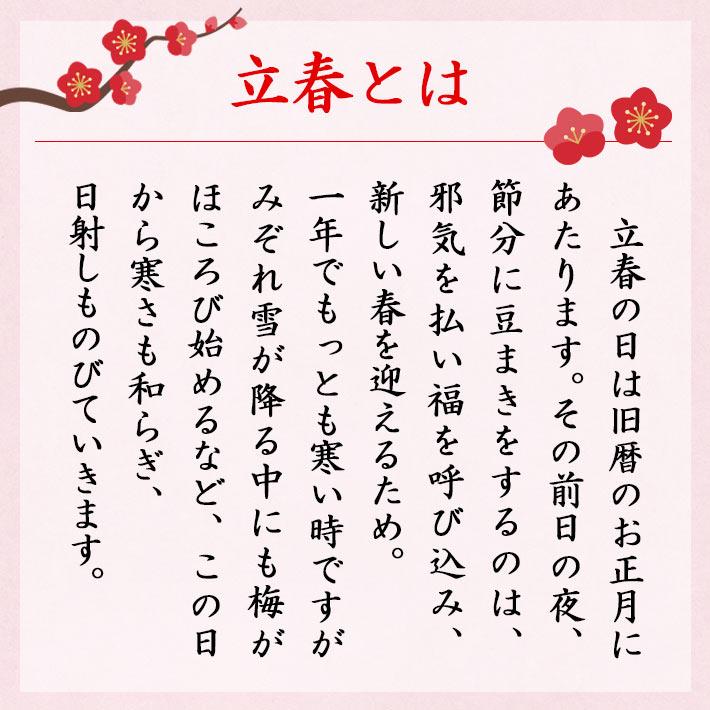 立春とは
立春の日は旧暦のお正月に
あたります。その前日の夜、
節分に豆まきをするのは、
邪気を払い福を呼び込み、
新しい春を迎えるため。
一年でもっとも寒い時ですが
みぞれ雪が降る中にも梅が
ほころび始めるなど、この日
から寒さも和らぎ、
日射しものびていきます。